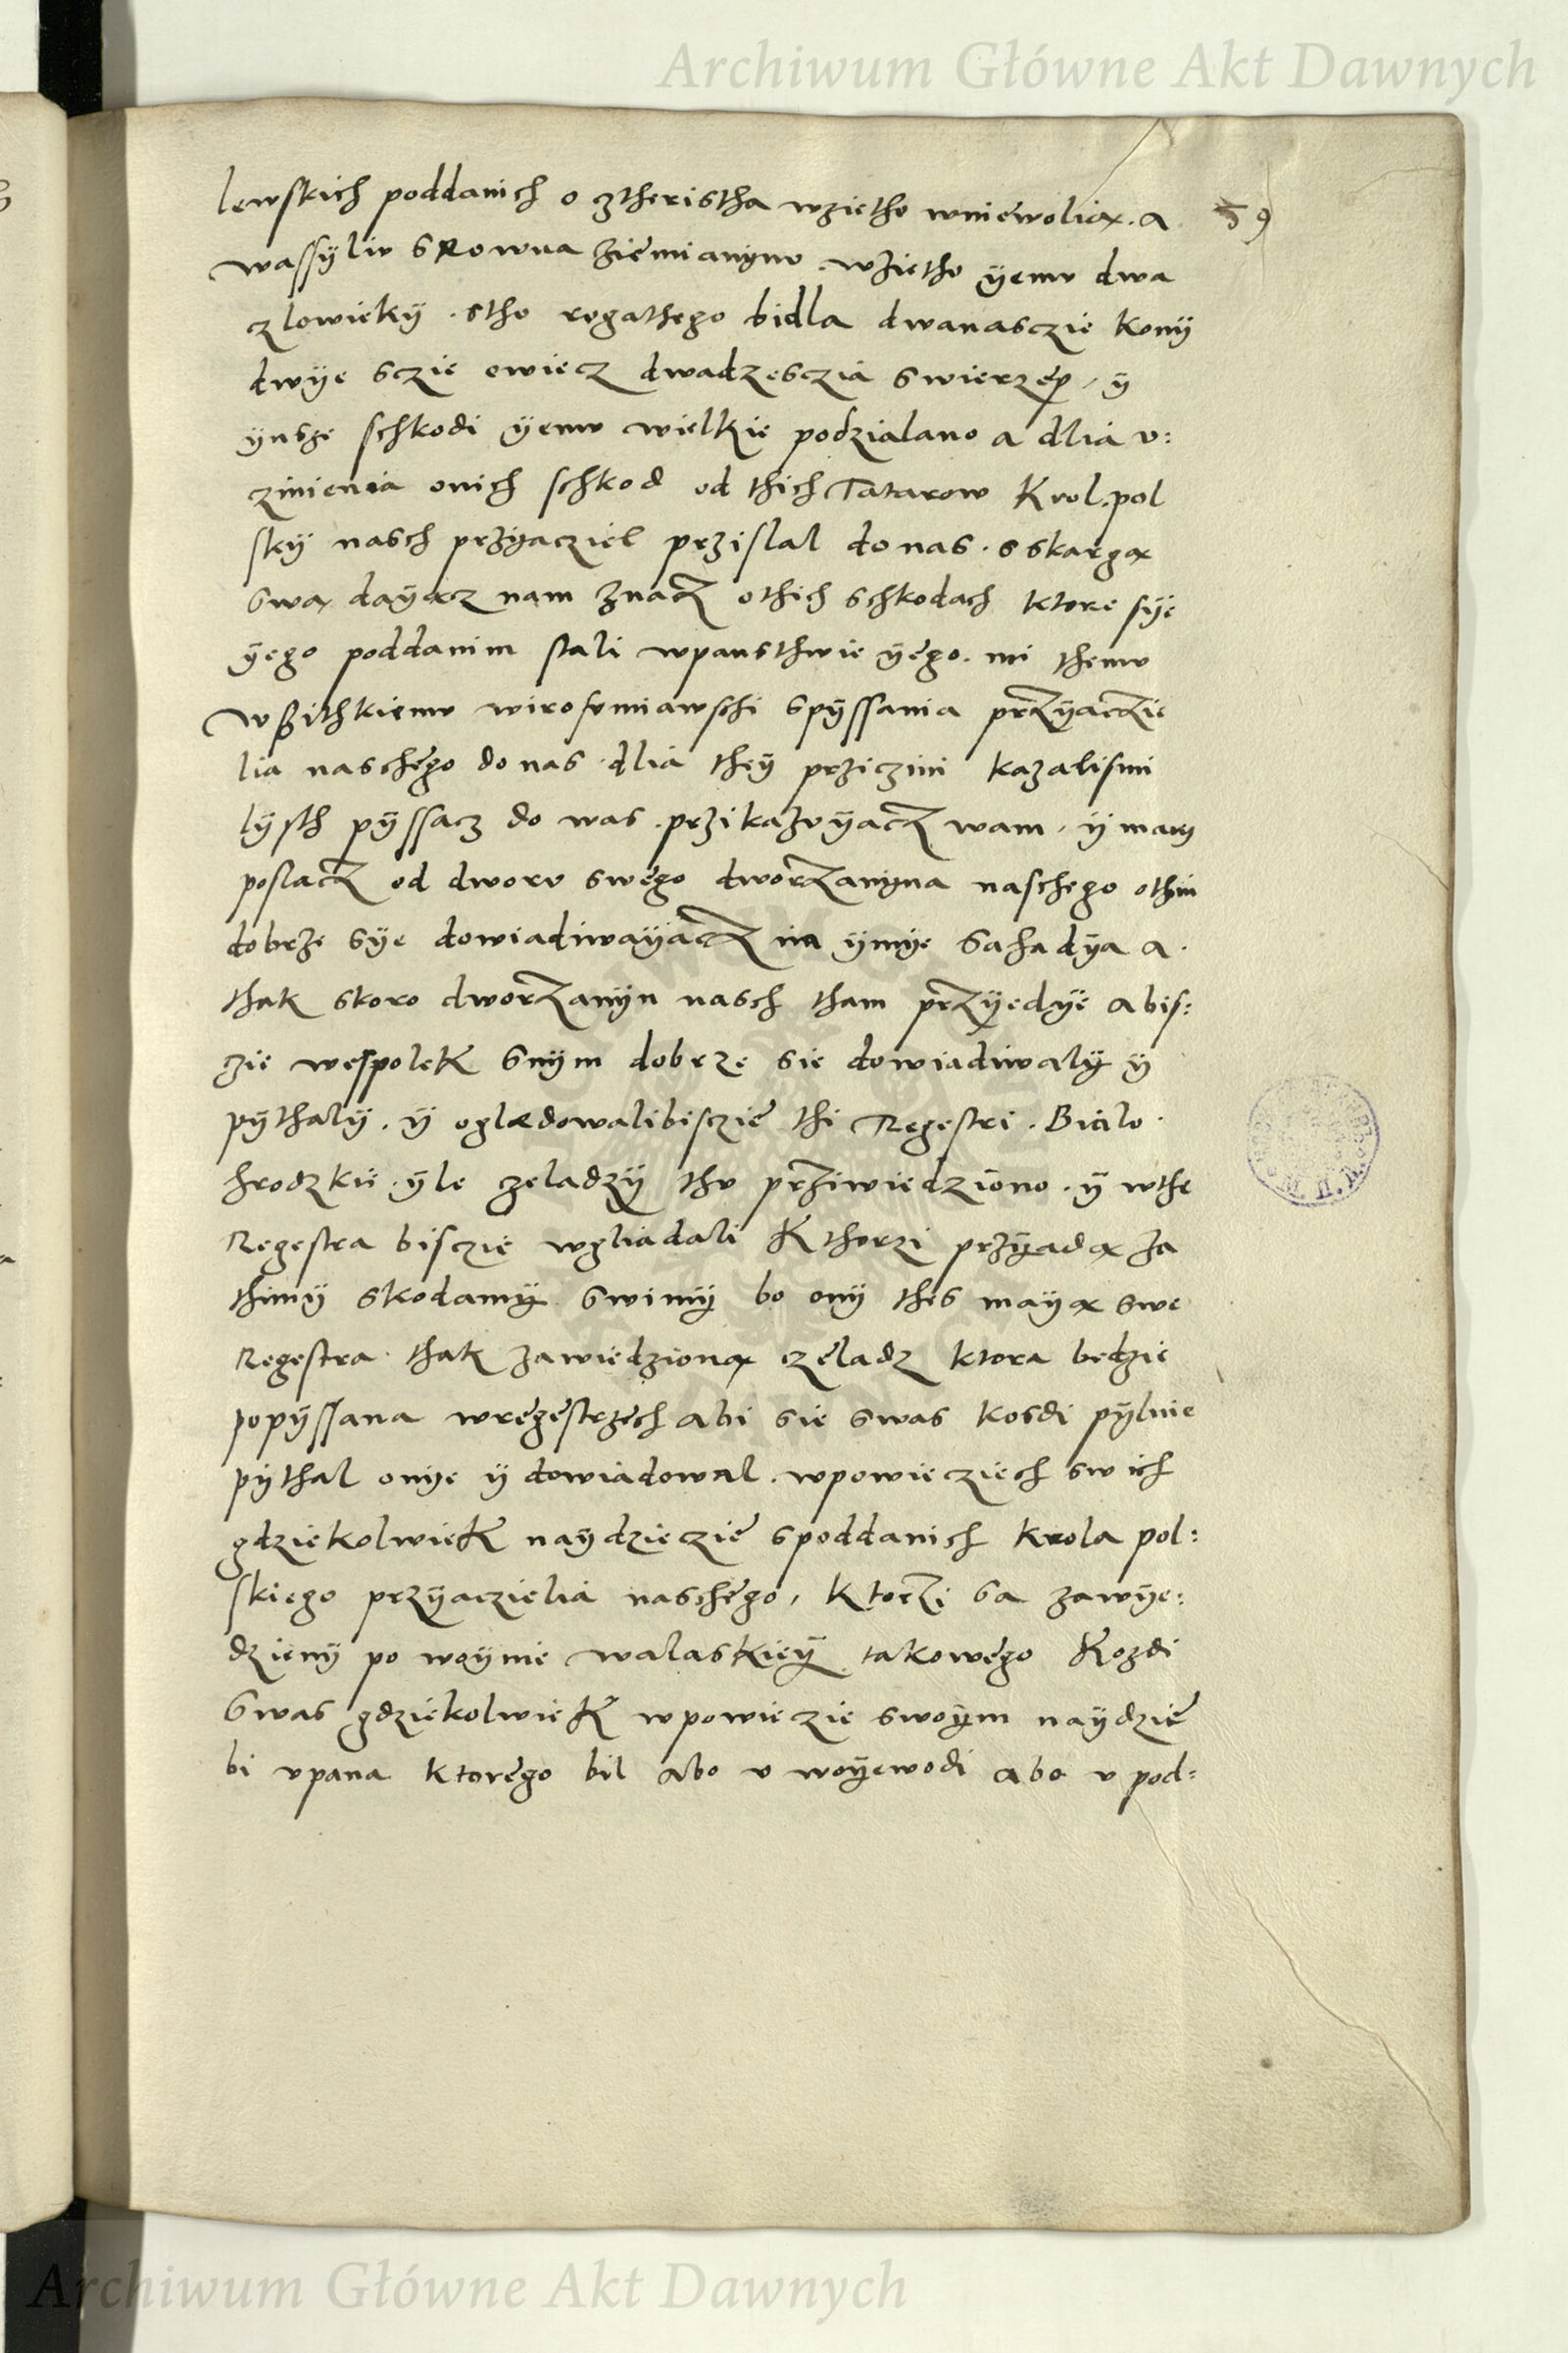 Archiwum Główne Akt Dawnych
59
lewskich poddanich o cztheristha wzietho wniewolią. a
wassyliu skowna ziemianynu. wzietho yemu dwa
czlowieky. stho rogathego bidla dwanasczie kony
dwye sczie owiecz dwadzesczia swierzep, y
ynsze schkodi yemu wielkie podzialano a dlia u:
zinienia onich schkod od thich Tatarow Krol. pol
sky nasch przyacziel przislal do nas. s skargą
swą dayącz nam znacz othich schkodach ktore sye
yego poddanim stali wpansthwie yego. mi themu
wszithkiemu wirosumiawschi spyssania przyaczie
lia naschego do nas. dlia they przicini kazalismi
lysth pyssacz do was. przikazuyacz wam, y mamy
poslacz od dworu swego dworzanyna naschego othim
dobrze sye dowiadiwayacz na ymye Safadya a.
thak skoro dworzanyn nasch tham przyedye abis:
zie wespolek snym dobrze sie dowiadiwaly y
pythaly. y oglædowalibisczie thi Regestri. Bialo.
hrodzkie. yle zeladzy thu prziwiedziono. y wthe
Regestra bisczie wgliadali Kthorzi przyadą za
thimy skodamy swimy bo ony thes mayą swe
Regestra. thak zawiedzioną czeladz ktora bedzie
popyssana wregestrzech abi sie swas kosdi pylnie
pythal onye y dowiadowal. wpowieciech swich
gdziekolwiek naydzieczie spoddanich krola pol:
skiego przyaczielia naschego, ktorzi sa zawye:
dzieny po woynie walaskiey takowego Kozdi
swas gdziekolwiek wpowiezie swoym naydzie
bi upana ktorego bil abo u woyewodi abo u pod:
Archiwum Główne Akt Dawnych